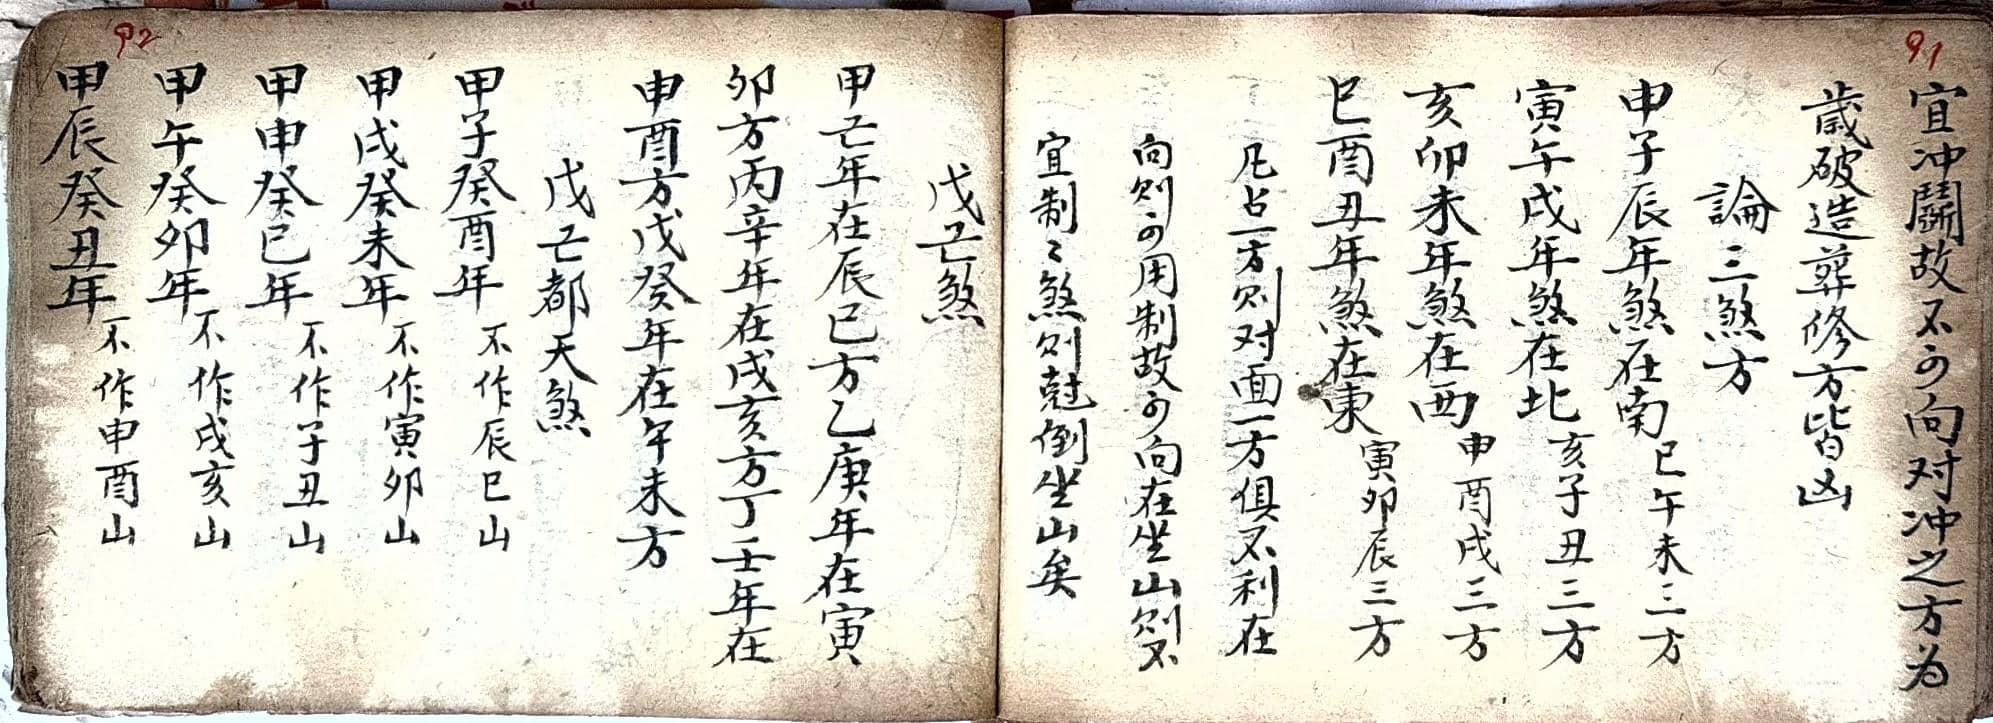 91
宜冲鬭故不可向对冲之方为
歲破造葬修方皆凶
論三煞方
申子辰年煞在南巳午未三方
寅午戌年煞在北亥子丑三方
亥卯未年煞在西申酉戌三方
巳酉丑年煞在東寅卯辰三方
凡占一方则对面一方俱不利在
向则可用制故可向在坐山则不
宜制〻煞则尅倒坐山矣
92
戊己煞
甲己年在辰巳方乙庚年在寅
卯方丙辛年在戌亥方丁壬年在
申酉方戊癸年在午未方
戊己都天煞
甲子癸酉年不作辰巳山
甲戌癸未年不作寅卯山
甲申癸巳年不作子丑山
甲午癸卯年不作戌亥山
甲辰癸丑年不作申酉山